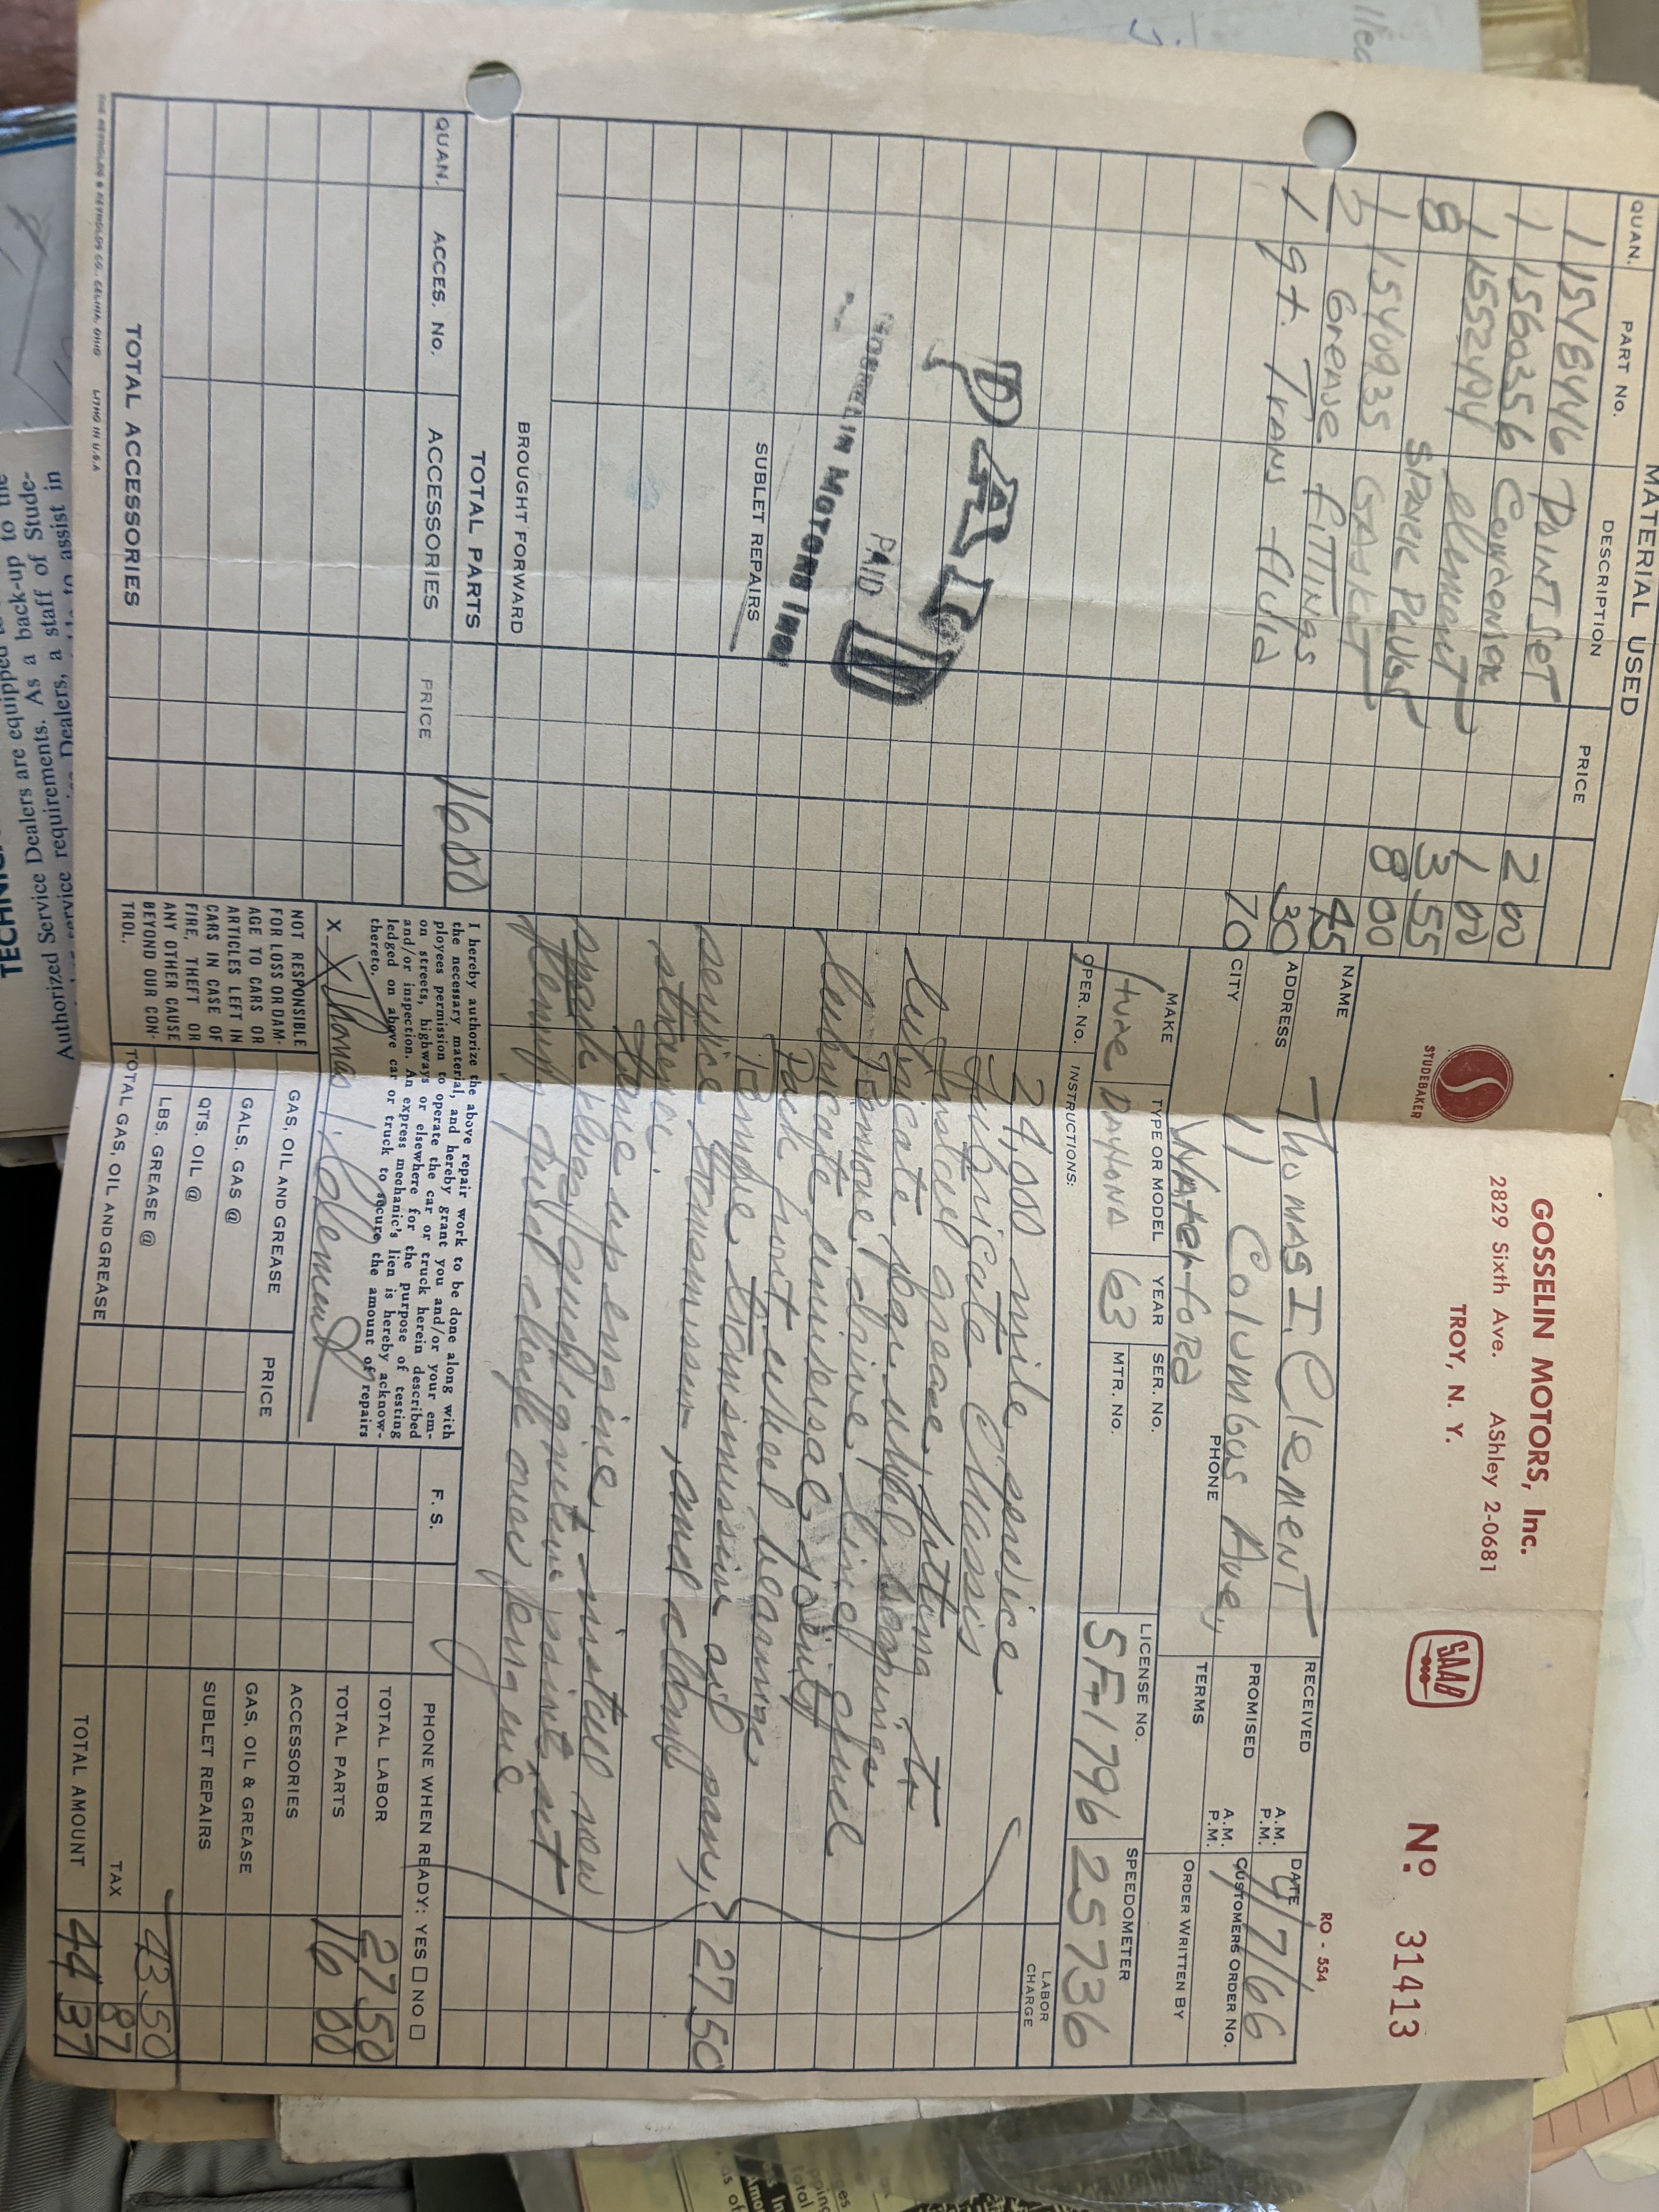 MATERIAL USED
QUAN. PART No. DESCRIPTION PRICE
1 1558446 POINT SET 2 00
1 1560356 CONDONSER 1 00
1 1552494 element 3 55
8 SPARK PLUGS 8 00
1 1540935 GASKET 45
2 Grease fittings 30
1 qt. Trans fluid 70
PAID
PAID
MOTORS Inc.
SUBLET REPAIRS
BROUGHT FORWARD
TOTAL PARTS 16 00
QUAN. ACCES. No. ACCESSORIES PRICE
TOTAL ACCESSORIES
THE REYNOLDS & REYNOLDS CO., CELINA, OHIO LITHO IN U.S.A
STUDEBAKER
GOSSELIN MOTORS, Inc.
2829 Sixth Ave. AShley 2-0681
TROY, N. Y.
SAAB
No. 31413
RO - 554
NAME Thomas I. Clement
ADDRESS 11 Columbus Ave,
CITY Waterford PHONE
RECEIVED A.M. P.M.
PROMISED A.M. P.M.
TERMS
DATE 9/7/66
CUSTOMERS ORDER No.
ORDER WRITTEN BY
MAKE TYPE OR MODEL YEAR SER. No. LICENSE No. SPEEDOMETER
Stude DAYTONA 63 MTR. No. 5F-1796 25736
OPER. No. INSTRUCTIONS: LABOR CHARGE
24,000 mile service
Lubricate Chassis
Install grease fitting to
lubricate rear wheel bearings
Remove drive line and
lubricate universal joints
Pack front wheel bearings
service transmission, and clean
strainer.
Tune up engine, install new
spark plugs, and ignition points, set
timing and check over engine
27 50
I hereby authorize the above repair work to be done along with
the necessary material, and hereby grant you and/or your em-
ployees permission to operate the car or truck herein described
on streets, highways or elsewhere for the purpose of testing
and/or inspection. An express mechanic's lien is hereby acknow-
ledged on above car or truck to secure the amount of repairs
thereto.
X X Thomas I. Clement
NOT RESPONSIBLE
FOR LOSS OR DAM-
AGE TO CARS OR
ARTICLES LEFT IN
CARS IN CASE OF
FIRE, THEFT OR
ANY OTHER CAUSE
BEYOND OUR CON-
TROL.
GAS, OIL AND GREASE PRICE
GALS. GAS @
QTS. OIL @
LBS. GREASE @
TOTAL GAS, OIL AND GREASE
F. S.
PHONE WHEN READY: YES □ NO □
TOTAL LABOR 27 50
TOTAL PARTS 16 00
ACCESSORIES
GAS, OIL & GREASE
SUBLET REPAIRS
43 50
TAX 87
TOTAL AMOUNT 44 37
Authorized Service Dealers are equipped
service requirements. As a back-up to the
Dealers, a staff of Stude-
to assist in